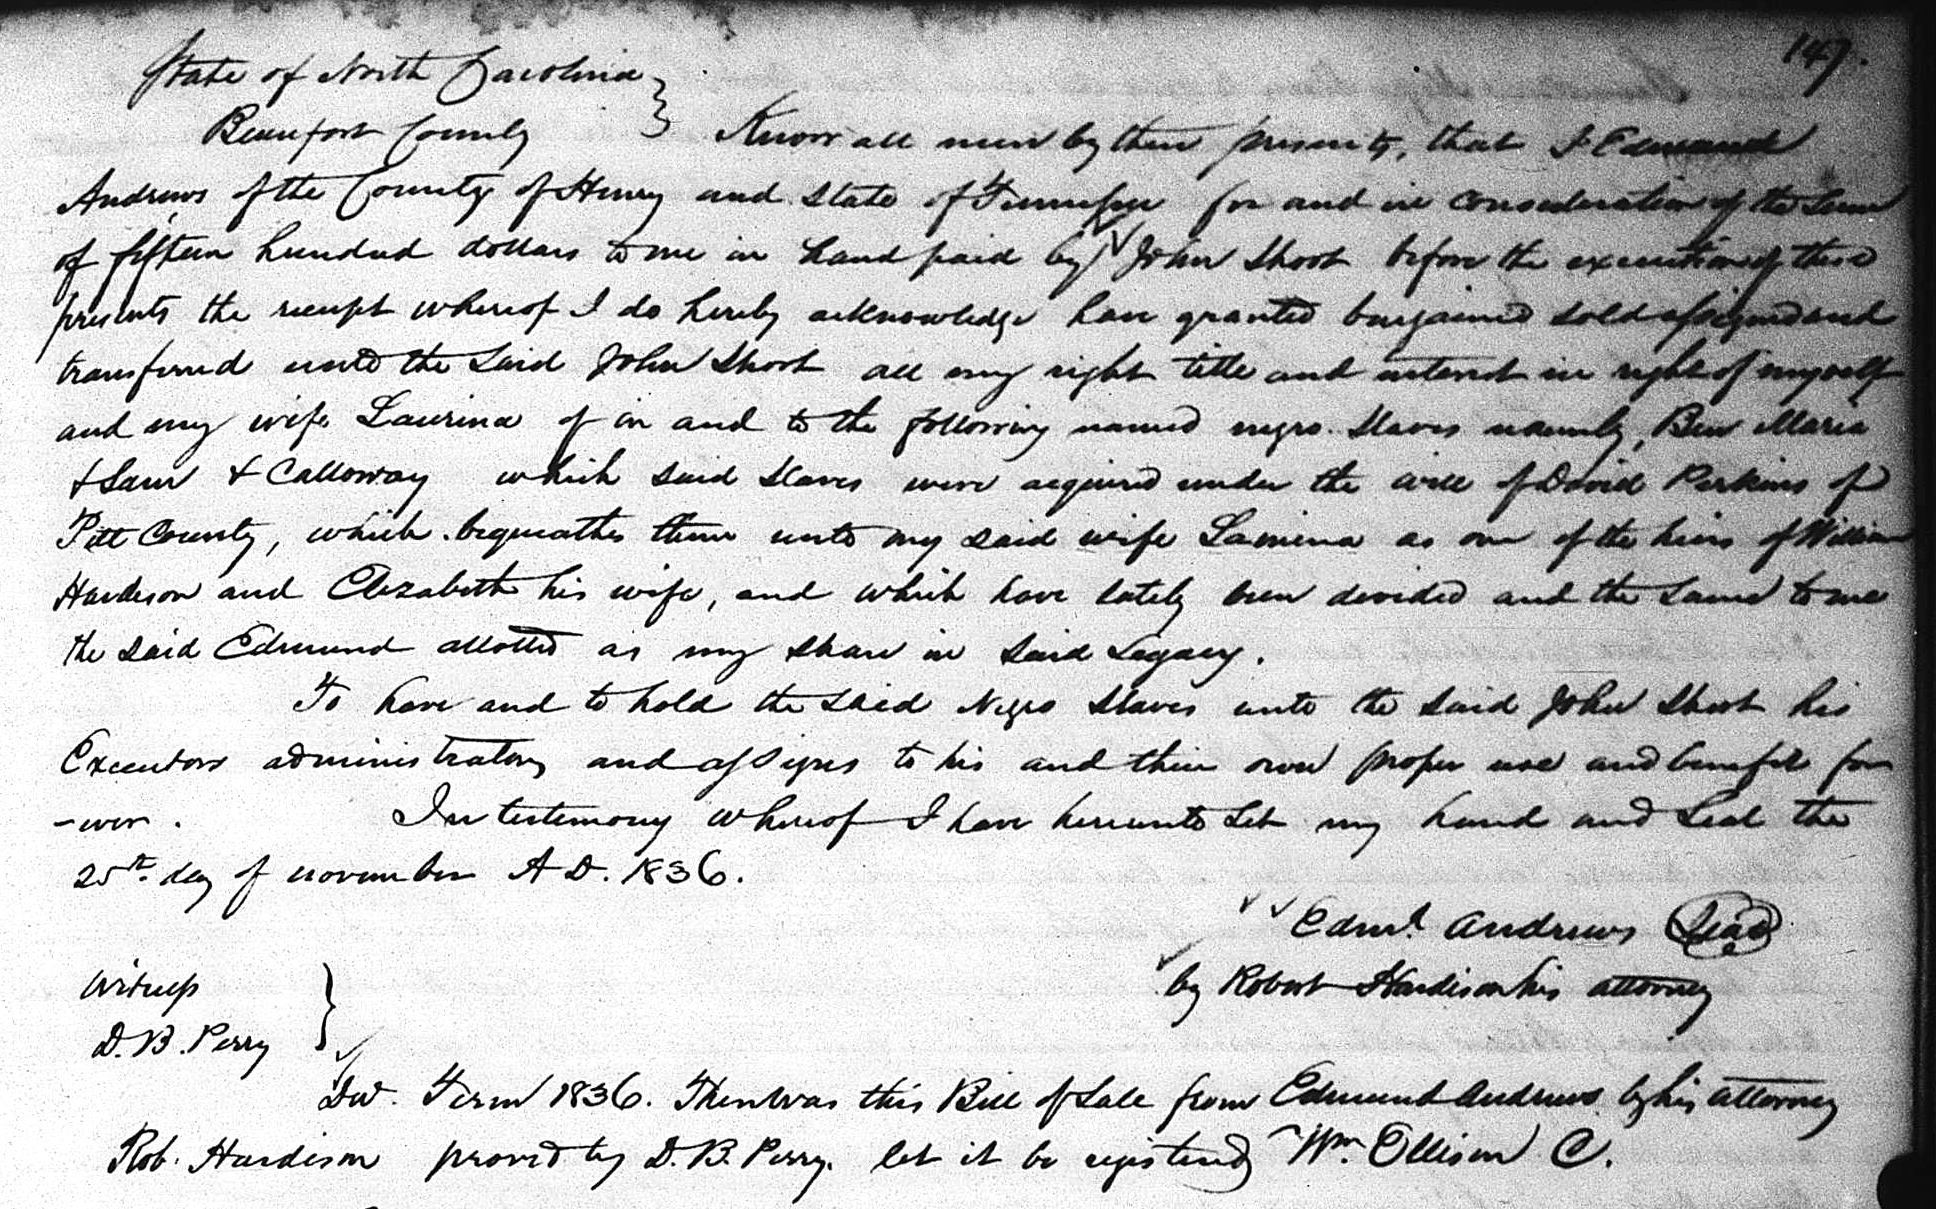 147.
State of North Carolina }
Beaufort County } Know all men by these presents, that I Edmund
Andrews of the County of Henry and State of Tennessee for and in consideration of the sum
of fifteen hundred dollars to me in hand paid by John Short before the execution of these
presents the receipt whereof I do hereby acknowledge have granted bargained sold assigned and
transferred unto the said John Short all my right title and interest in right of myself
and my wife Laurina of in and to the following named negro slaves namely, Ben Maria
+ Sam + Calloway which said slaves were acquired under the will of David Perkins of
Pitt County, which bequeathes them unto my said wife Laurina as one of the heirs of William
Hardison and Elizabeth his wife, and which have lately been divided and the same to me
the said Edmund allotted as my share in said Legacy.
To have and to hold the said Negro slaves unto the said John Short his
Executors administrators and assigns to his and their own proper use and benefit for
-ever. In testimony whereof I have hereunto set my hand and seal the
25th. day of november A D. 1836.
Edmd. Andrews Seal
by Robert Hardison his attorney
Witness }
D. B. Perry }
Term 1836. Then was this Bill of Sale from Edmund Andrews by his attorney
Rob. Hardison proved by D. B. Perry. let it be registered Wm. Ellison C.